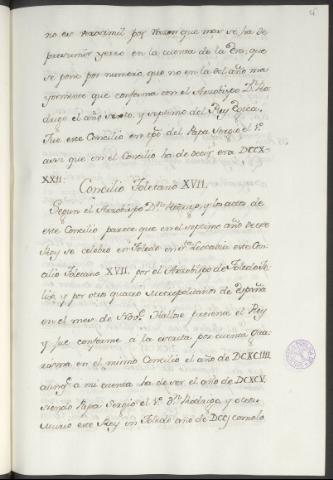 no es verisimil por razon que mas se ha de
presumir yerro en la cuenta de la Era, que
se pone por numero, que no en la del año ma
yormente que conforma con el Arzobispo Dn Ro
drigo el año sexto, y septimo del Rey Egica.
Fue este Concilio en tpo del Papa Sergio el 1o
assi que en el Concilio ha de decir era DCCX-
XXII.
Concilio Toletano XVII.
Segun el Arzobispo Dn Rodrigo, y los actos de
este Concilio parece que en el septimo año de este
Rey se celebro en Toledo en Sta Leocadia este Con
cilio Toletano XVII. por el Arzobispo de Toledo Fe
lix, y por otros quatro Metropolitanos de España
en el mes de Nove Hallose presente el Rey
y fue conforme a la errata por cuenta Gra
en el mismo Concilio el año de DCXCIIII.
aunqe a mi cuenta ha de ser el año de DCXCV.
siendo Papa Sergio el 1o Dn Rodrigo, y
Murio este Rey en Toledo año de DCCI como lo